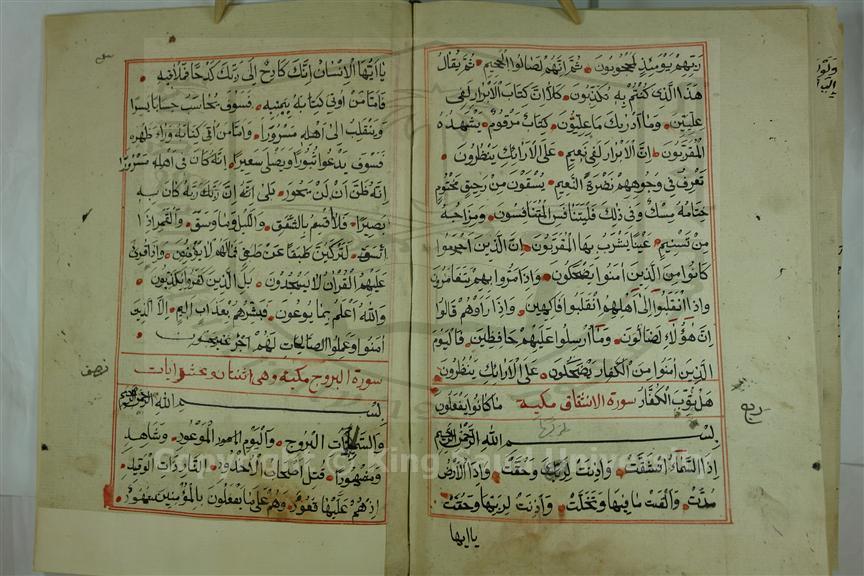 ربهم يومئذ لمحجوبون ثم انهم لصالوا الجحيم ثم يقال
هذا الذى كنتم به تكذبون كلا ان كتاب الابرار لفى
عليين وما ادريك ما عليون كتاب مرقوم يشهده
المقربون ان الابرار لفى نعيم على الارائك ينظرون
تعرف فى وجوههم نضرة النعيم يسقون من رحيق مختوم
ختامه مسك وفى ذلك فليتنافس المتنافسون ومزاجه
من تسنيم عينا يشرب بها المقربون ان الذين اجرموا
كانوا من الذين امنوا يضحكون واذا مروا بهم يتغامزون
واذا انقلبوا الى اهلهم انقلبوا فاكهين واذا راوهم قالوا
ان هؤلاء لضالون وما ارسلوا عليهم حافظين فاليوم
الذين امنوا من الكفار يضحكون على الارائك ينظرون
هل ثوب الكفار ما كانوا يفعلون
سورة الانشقاق مكية
بسم الله الرحمن الرحيم
اذا السماء انشقت واذنت لربها وحقت واذا الارض
مدت والقت ما فيها وتخلت واذنت لربها وحقت
ياايها
ربع
ياايها الانسان انك كادح الى ربك كدحا فملاقيه
فاما من اوتى كتابه بيمينه فسوف يحاسب حسابا يسيرا
وينقلب الى اهله مسرورا واما من اوتى كتابه وراء ظهره
فسوف يدعوا ثبورا ويصلى سعيرا انه كان فى اهله مسرورا
انه ظن ان لن يحور بلى انه ان ربك ربه كان به
بصيرا فلا اقسم بالشفق والليل وما وسق والقمر اذا
اتسق لتركبن طبقا عن طبق فما لهم لا يؤمنون واذا قرئ
عليهم القران لا يسجدون بل الذين كفروا يكذبون
والله اعلم بما يوعون فبشرهم بعذاب اليم الا الذين
امنوا وعملوا الصالحات لهم اجر غير ممنون
سورة البروج مكية وهى اثنتان وعشر ايات
بسم الله الرحمن الرحيم
والسماء ذات البروج واليوم الموعود وشاهد
ومشهود قتل اصحاب الاخدود النار ذات الوقيد
اذهم عليها قعود وهم على ما يفعلون بالمؤمنين شهود
نصف
Copyright © King Saud University